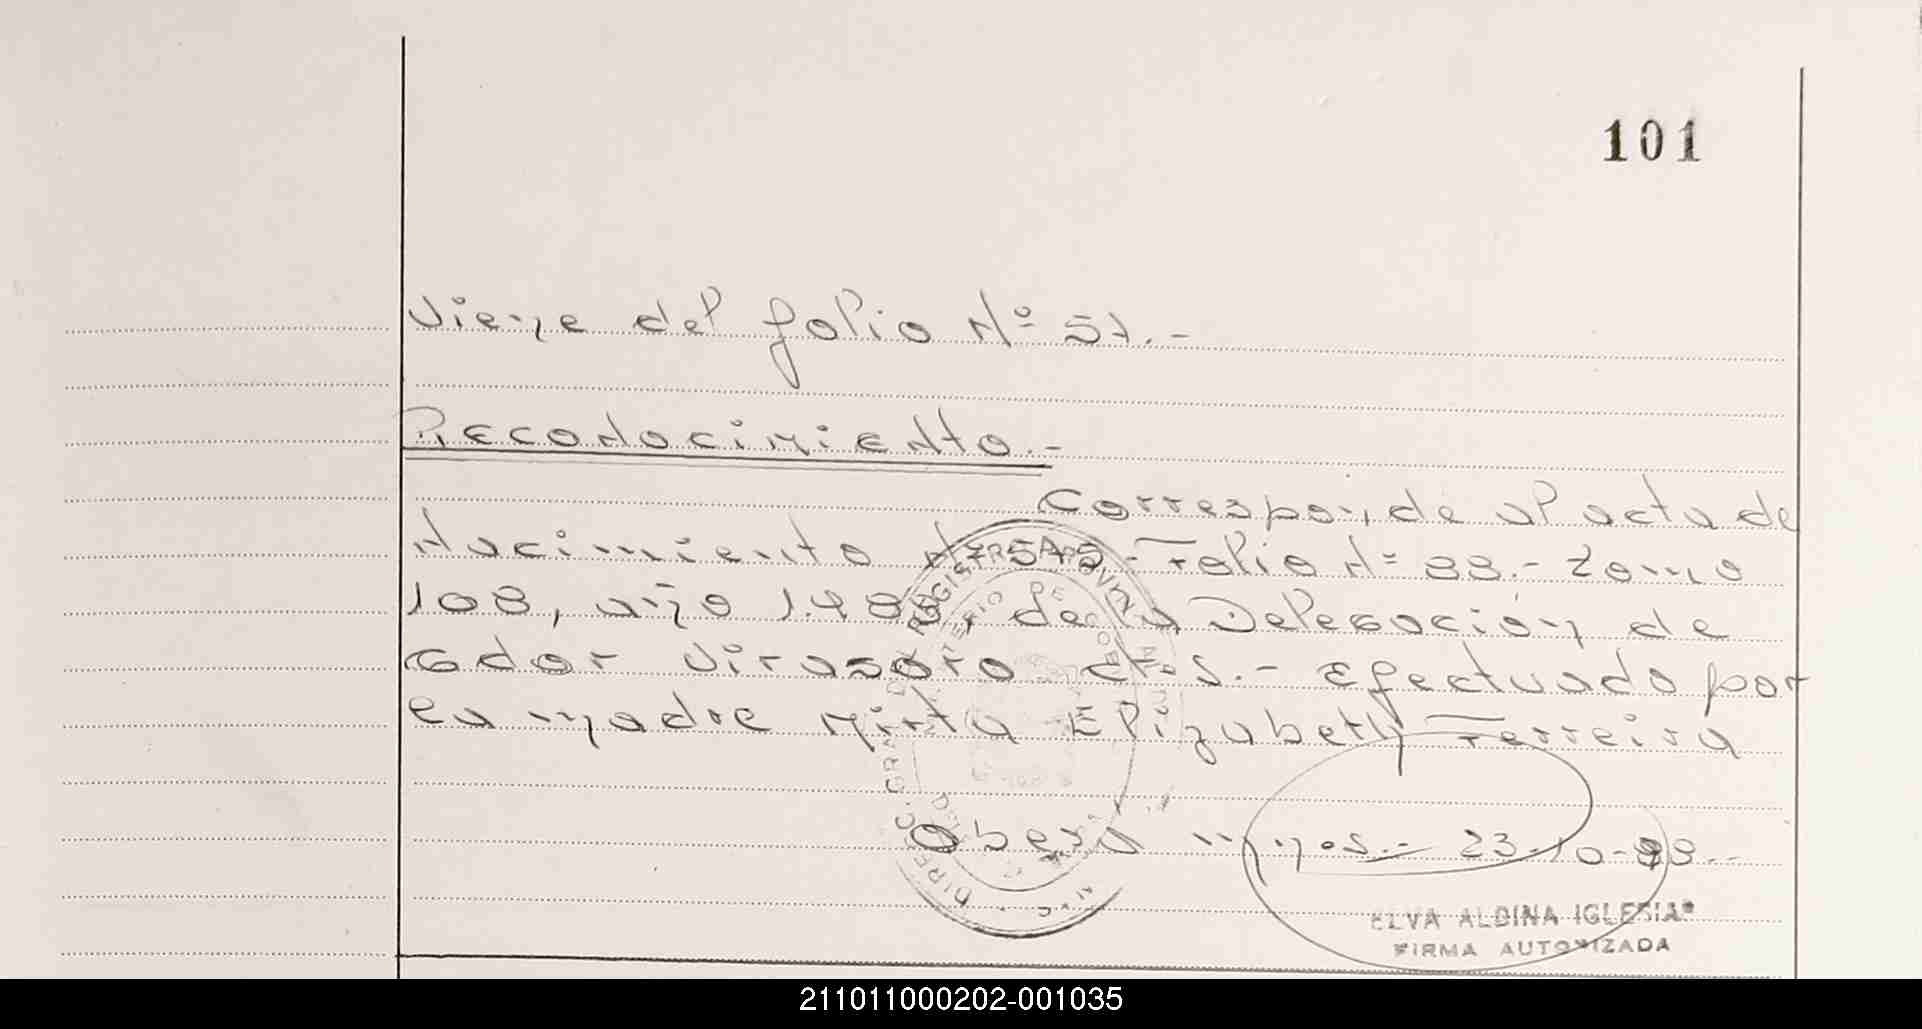 101
Viene del folio Nº 57.-
Reconocimiento.-
Corresponde al acta de
Nacimiento Nº 545 - Folio Nº 33.- Tomo
108, año de la Delegación de
Gdor Virasoro Ctes.- Efectuado por
su madre Mirta Elizabeth Ferreira
Oberá Mnes.- 23-10-
ELVA ALDINA IGLESIAS
FIRMA AUTORIZADA
211011000202-001035